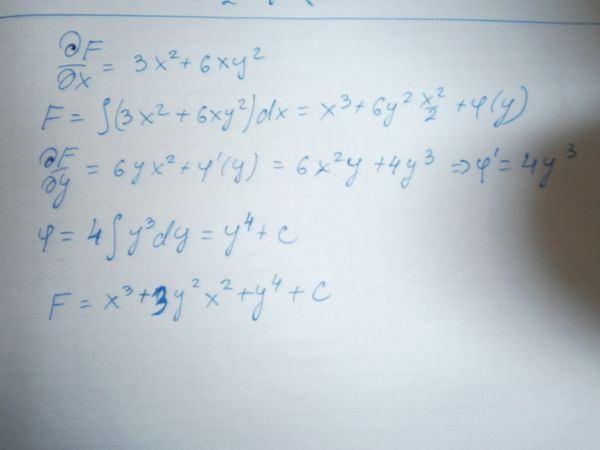 ∂F/∂x = 3x² + 6xy²
F = ∫(3x² + 6xy²)dx = x³ + 6y² x²/2 + φ(y)
∂F/∂y = 6yx² + φ'(y) = 6x²y + 4y³ ⇒ φ' = 4y³
φ = 4∫y³dy = y⁴ + C
F = x³ + 3y²x² + y⁴ + C